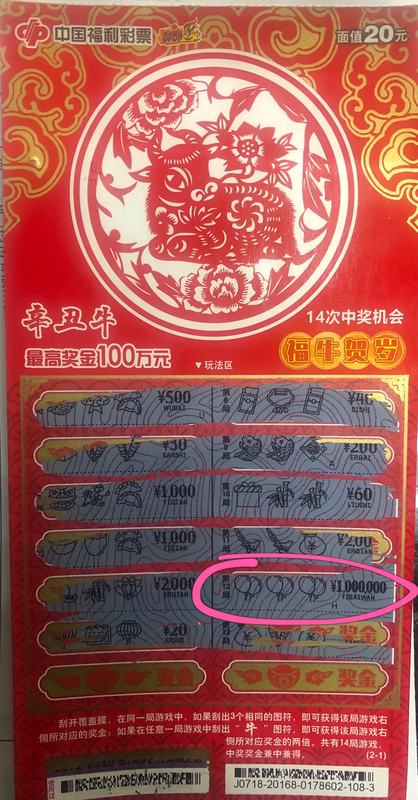 中国福利彩票 刮刮乐 面值20元
辛丑牛
14次中奖机会
最高奖金100万元
▼玩法区
福牛贺岁
¥500
WUBAI
第8局
SISHI
¥30
SANSHI
第9局
¥200
ERBAI
¥1,000
YIQIAN
第10局
¥60
LIUSHI
¥1,000
YIQIAN
第11局
ERQIAN
¥2,000
ERQIAN
第12局
¥1,000,000
YIBAIWAN
H
¥20
ERSHI
第13局
奖金
奖金
奖金
刮开覆盖膜，在同一局游戏中，如果刮出3个相同的图符，即可获得该局游戏右
侧所对应的奖金；如果在任意一局游戏中刮出“牛”图符，即可获得该局游戏右
侧所对应奖金的两倍。共有14局游戏，
中奖奖金兼中兼得。 (2-1)
J0718-20168-0178602-108-3